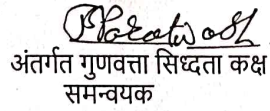 अंतर्गत गुणवत्ता सिध्दता कक्ष
समन्वयक